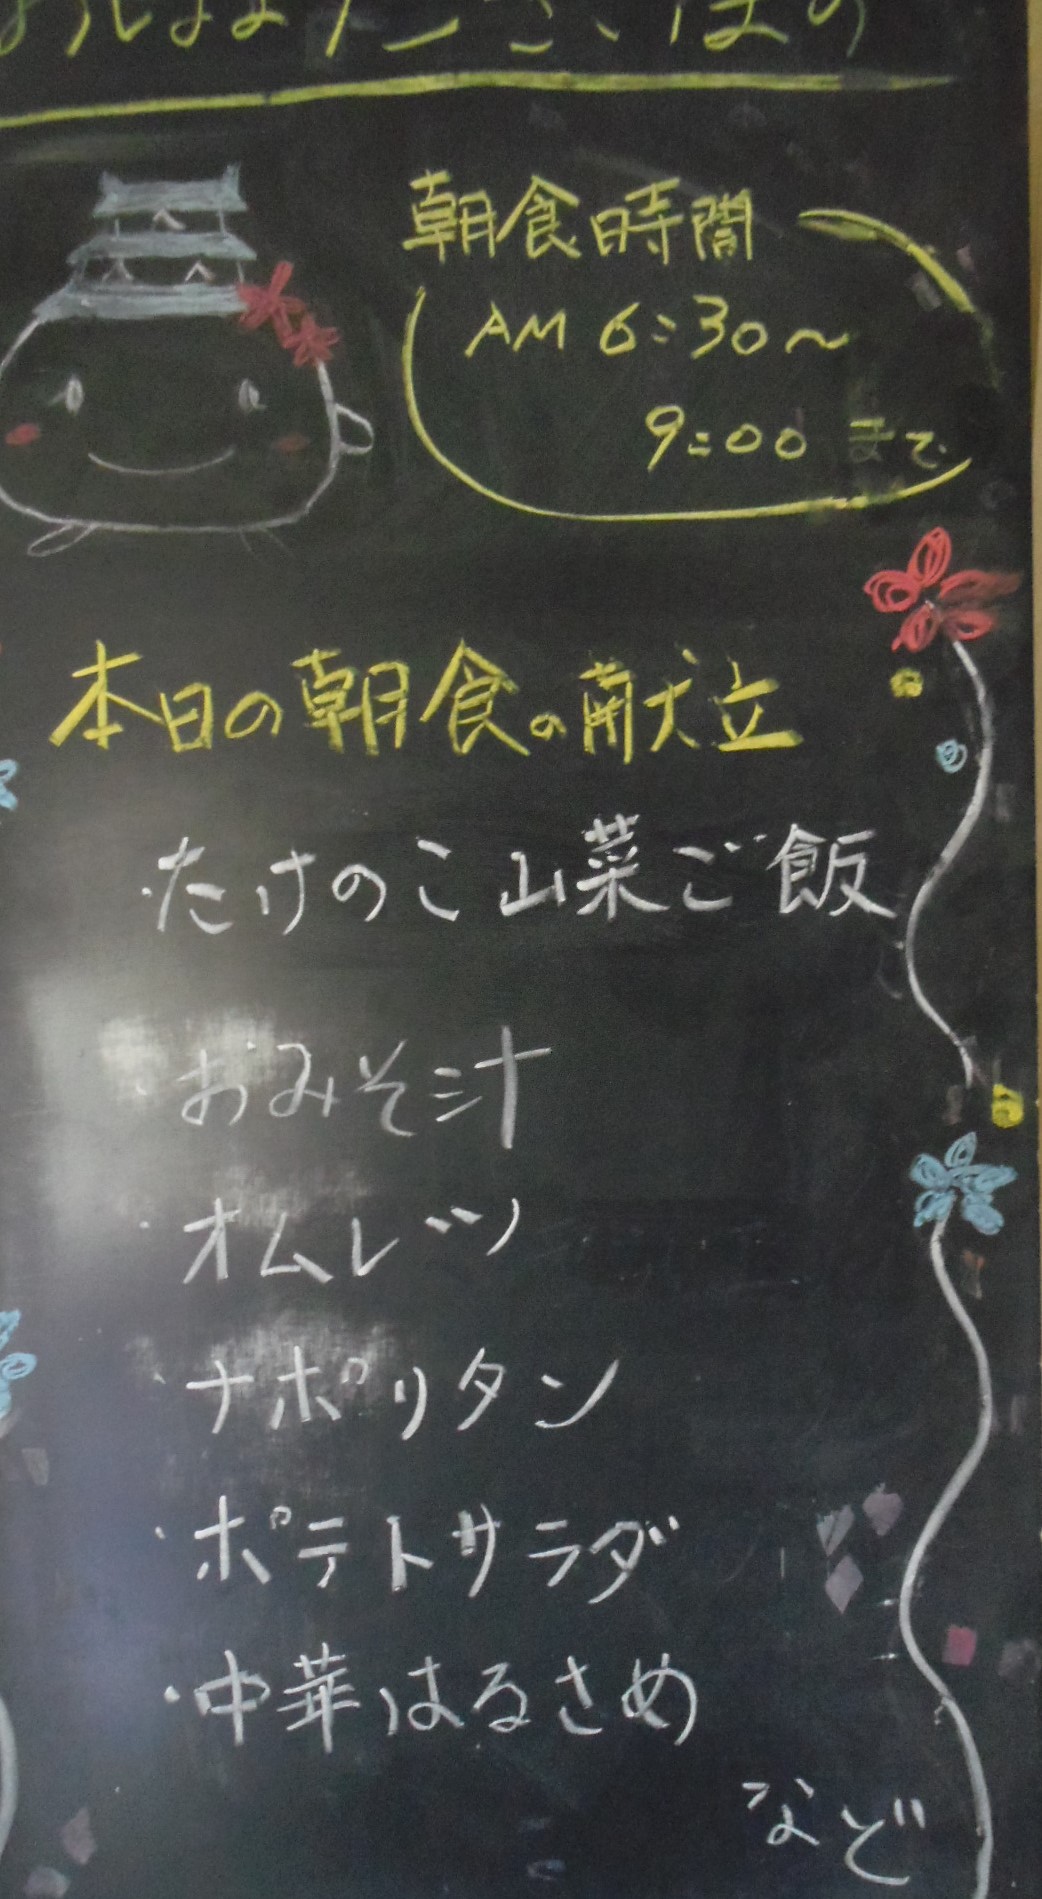 朝食時間
AM 6:30~
9:00 まで
本日の朝食の献立
・たけのこ山菜ご飯
・おみそ汁
・オムレツ
・ナポリタン
・ポテトサラダ
・中華はるさめ
など